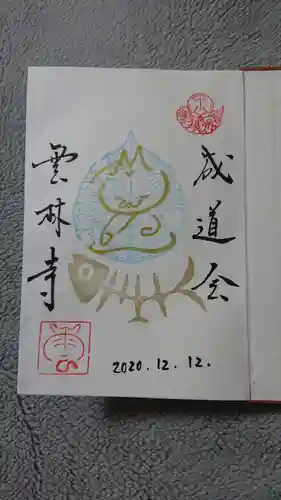 成道会
雲林寺
2020.12.12.